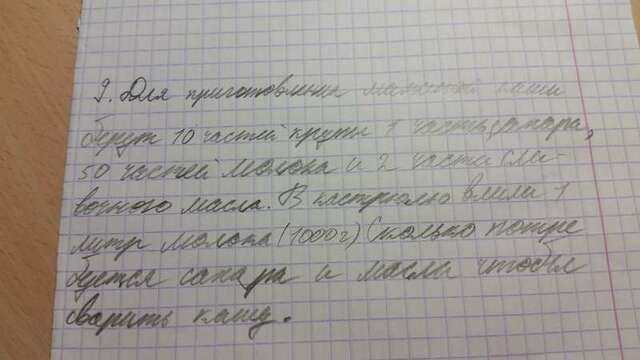 9. Для приготовления манной каши
берут 10 частей крупы 1 часть сахара,
50 частей молока и 2 части сли-
вочного масла. В кастрюлю влили 1
литр молока (1000г) Сколько потре
буется сахара и масла чтобы
сварить кашу.